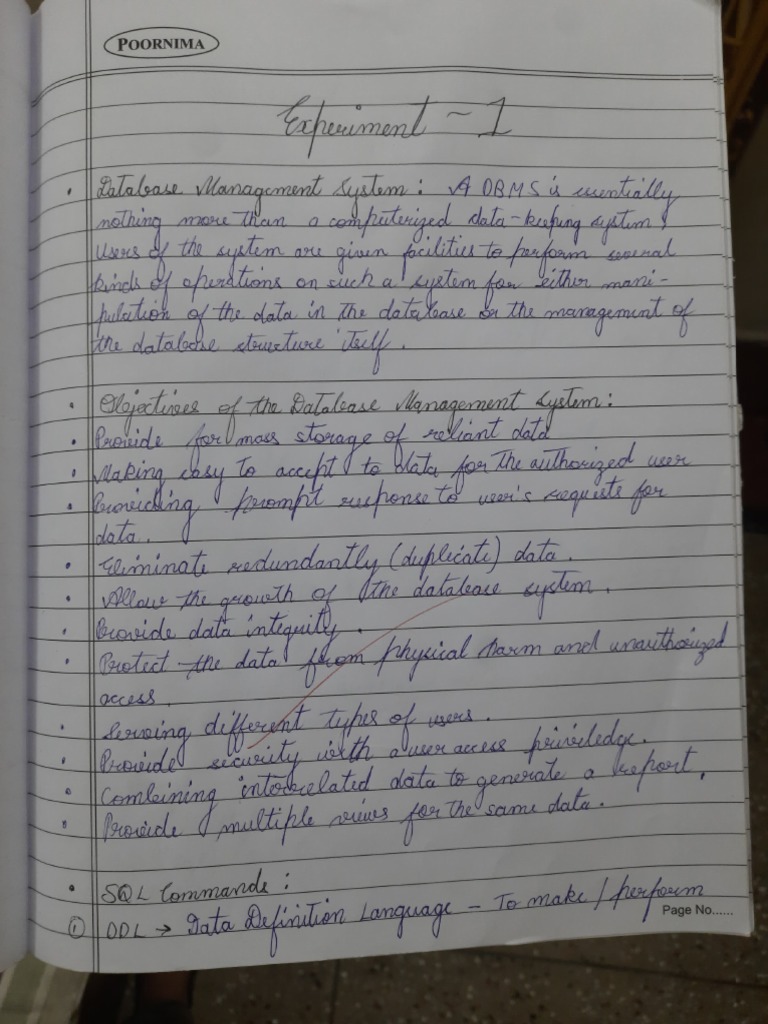 POORNIMA
Experiment - 1
• Database Management System : A DBMS is essentially
nothing more than a computerized data-keeping system.
Users of the system are given facilities to perform several
kinds of operations on such a system for either mani-
pulation of the data in the database or the management of
the database structure itself.
• Objectives of the Database Management System :
• Provide for mass storage of reliant data
• Making easy to accept to data for the authorized user
• Providing prompt response to user's requists for
data.
• Eliminate redundantly (duplicate) data.
• Allow the growth of the database system.
• Provide data integrity.
• Protect the data from physical harm and unauthorized
access.
• Serving different types of users.
• Provide security with a user access priviledge.
• Combining interrelated data to generate a report.
• Provide multiple views for the same data.
• SQL Commands :
① DDL → Data Definition Language - To make / perform
Page No......